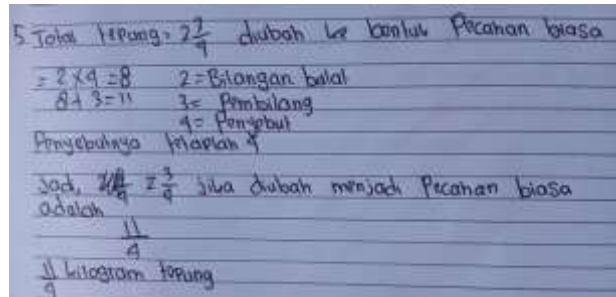 5. Total tepung = 2 3/4 diubah ke bentuk Pecahan biasa
= 2 x 4 = 8 2 = Bilangan bulat
8 + 3 = 11 3 = Pembilang
4 = Penyebut
Penyebutnya tetaplah 4
Jadi, 2 3/4 jika diubah menjadi Pecahan biasa
adalah
11/4
11/4 kilogram tepung